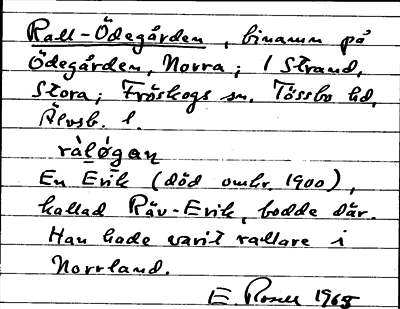 Rall-Ödegården, binamn på
Ödegården, Norra; 1 Strand,
Stora; Fröskogs sn. Tössbo hd,
Älvsb. l.
ràløgan
En Erik (död omkr. 1900),
kallad Räv-Erik, bodde där.
Han hade varit rallare i
Norrland.
E. 1965